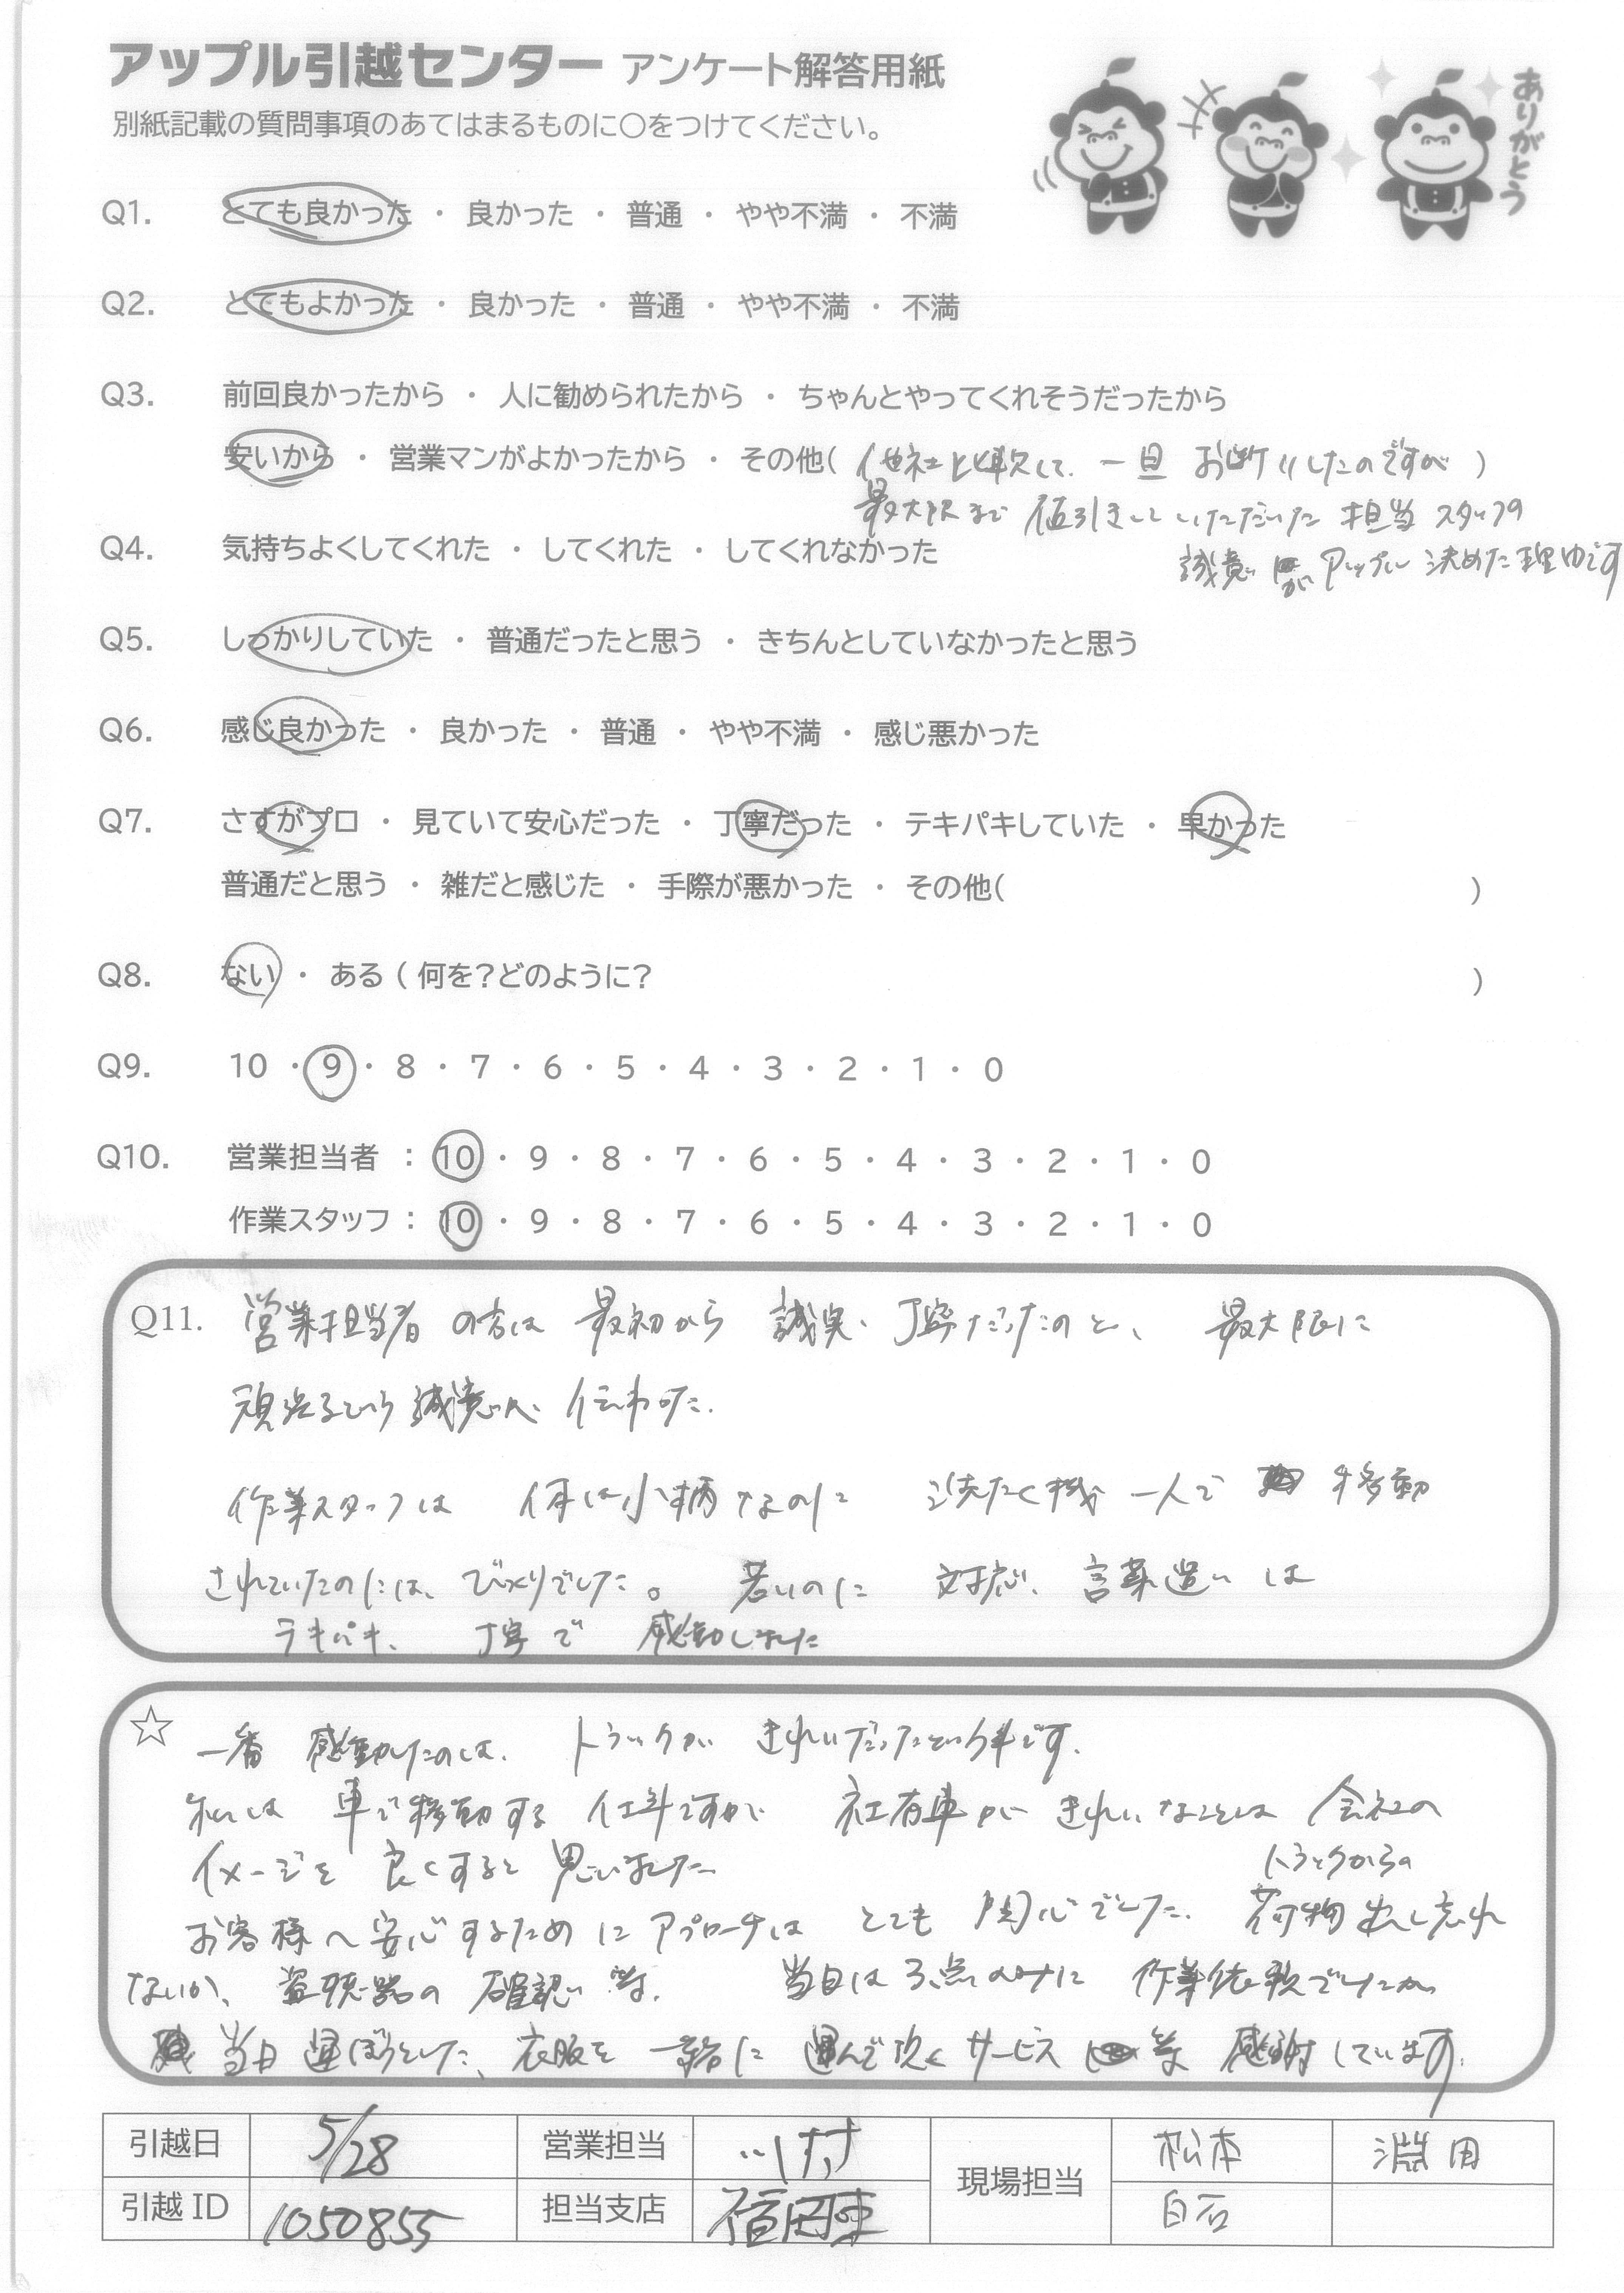 アップル引越センター アンケート解答用紙
ありがとう
別紙記載の質問事項のあてはまるものに〇をつけてください。
Q1. とても良かった ・ 良かった ・ 普通 ・ やや不満 ・ 不満
Q2. とてもよかった ・ 良かった ・ 普通 ・ やや不満 ・ 不満
Q3. 前回良かったから ・ 人に勧められたから ・ ちゃんとやってくれそうだったから
安いから ・ 営業マンがよかったから ・ その他( 他社と比較して、一旦 お断りしたのですが )
最大限まで 値引きしていただいた 担当 スタッフの
誠意 が アップル 決めた理由です
Q4. 気持ちよくしてくれた ・ してくれた ・ してくれなかった
Q5. しっかりしていた ・ 普通だったと思う ・ きちんとしていなかったと思う
Q6. 感じ良かった ・ 良かった ・ 普通 ・ やや不満 ・ 感じ悪かった
Q7. さすがプロ ・ 見ていて安心だった ・ 丁寧だった ・ テキパキしていた ・ 早かった
普通だと思う ・ 雑だと感じた ・ 手際が悪かった ・ その他( )
Q8. ない ・ ある ( 何を?どのように? )
Q9. 10 ・ 9 ・ 8 ・ 7 ・ 6 ・ 5 ・ 4 ・ 3 ・ 2 ・ 1 ・ 0
Q10. 営業担当者 : 10 ・ 9 ・ 8 ・ 7 ・ 6 ・ 5 ・ 4 ・ 3 ・ 2 ・ 1 ・ 0
作業スタッフ : 10 ・ 9 ・ 8 ・ 7 ・ 6 ・ 5 ・ 4 ・ 3 ・ 2 ・ 1 ・ 0
Q11. 営業担当者 の方は 最初から 誠実、丁寧だったのと、 最大限に
頑張るという誠意が 伝わった.
作業スタッフは 体は小柄なのに 洗たく機 一人で 移動
されていたのには、びっくりでした。 若いのに 対応、言葉遣いは
テキパキ、 丁寧で 感動しました
☆ 一番 感動したのは、 トラックが きれいだったという事です.
私は 車で移動する 仕事ですが 社有車が きれいなことは 会社の
イメージを 良くすると 思いました
トラックからの
お客様へ安心するためにアプローチは とても 関心でした. 荷物 出し忘れ
ないか、盗聴器の 確認 等. 当日は 3点のみに 作業依頼でしたが
当日 運ぼうとした、衣服を 一緒に 運んで頂く サービス 等 感謝しています.
引越日 5/28 営業担当 川村 現場担当 松本 淵田
引越 ID 1050855 担当支店 福岡東 白石